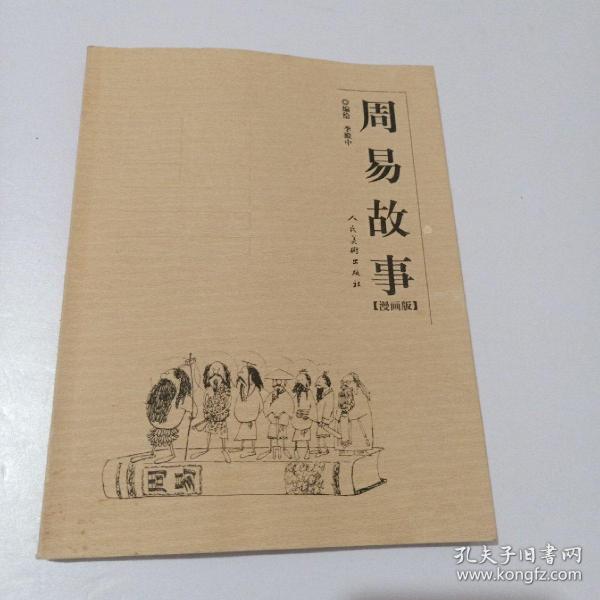 周易故事
【漫画版】
◎编绘 李燕中
人民美术出版社
孔夫子旧书网
www.kongfz.com